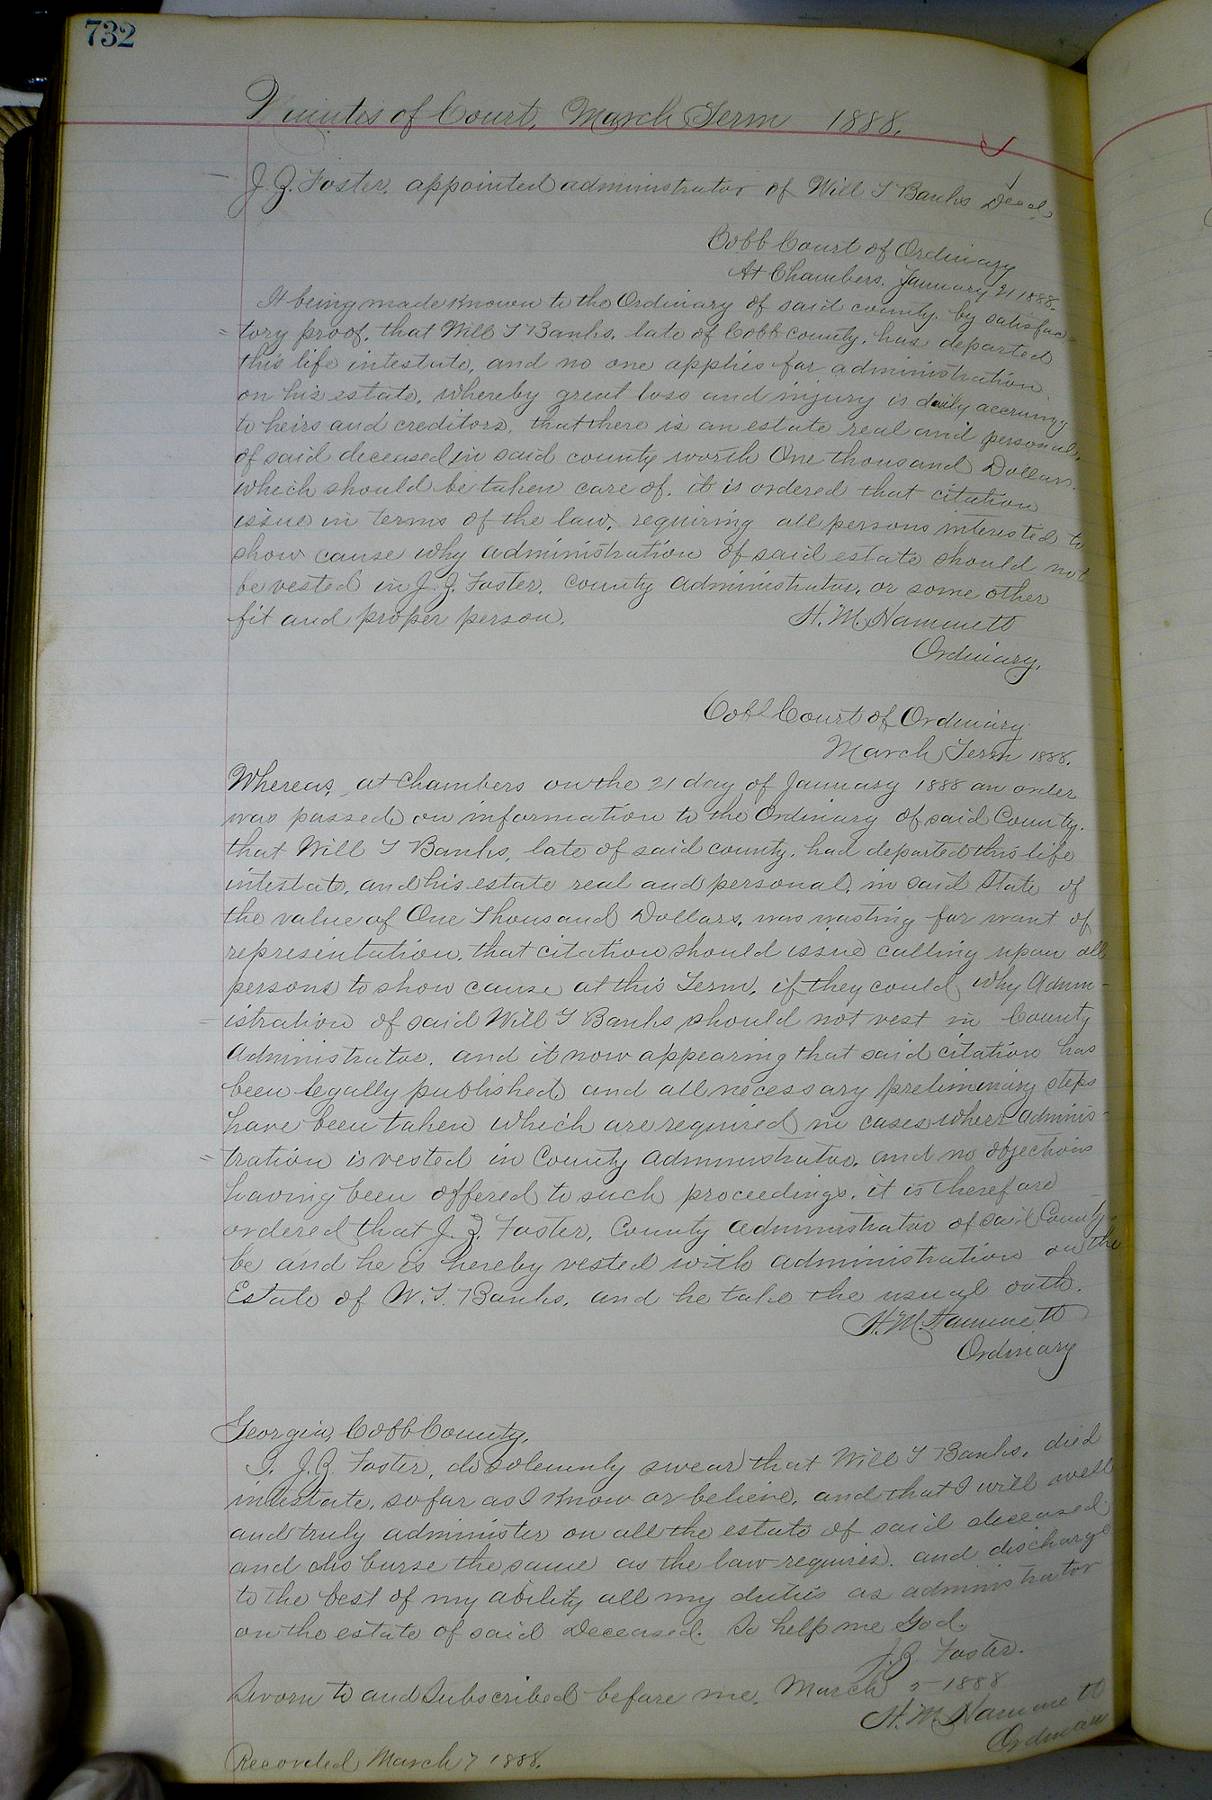 732
Minutes of Court, March Term 1888.
J. Z. Foster, appointed administrator of Will T Banks Decd
Cobb Court of Ordinary
At Chambers, January 21 1888.
It being made known to the Ordinary of said county by satisfac-
tory proof, that Will T Banks, late of Cobb county, has departed
this life intestate, and no one applies for administration
on his estate, whereby great loss and injury is daily accruing
to heirs and creditors, that there is an estate real and personal,
of said deceased in said county worth One thousand Dollars.
which should be taken care of, it is ordered that citation
issue in terms of the law, requiring all persons interested to
show cause why administration of said estate should not
be vested in J. Z. Foster, county administrator, or some other
fit and proper person.
H. M. Hammett
Ordinary.
Cobb Court of Ordinary
March Term 1888.
Whereas, at Chambers on the 21 day of January 1888 an order
was passed on information to the Ordinary of said County.
that Will T Banks, late of said county, had departed this life
intestate, and his estate real and personal, in said State of
the value of One Thousand Dollars, was wasting for want of
representation, that citation should issue calling upon all
persons to show cause at this Term, if they could, why Admin-
istration of said Will T Banks should not vest in County
Administrator, and it now appearing that said citation has
been legally published and all necessary preliminary steps
have been taken which are required in cases where adminis-
tration is vested in County Administrator, and no objections
having been offered to such proceedings, it is therefore
ordered that J. Z. Foster, County administrator of said County
be and he is hereby vested with administration on the
Estate of W. T. Banks, and he take the usual oath.
H. M. Hammett
Ordinary
Georgia, Cobb County,
I. J. Z Foster, do solemnly swear that Will T Banks, died
intestate, so far as I know or believe, and that I will well
and truly administer on all the estate of said deceased
and disburse the same as the law requires, and discharge
to the best of my ability all my duties as administrator
on the estate of said deceased. So help me God.
J. Z. Foster.
Sworn to and subscribed before me, March 5 1888
H. M. Hammett
Ordinary
Recorded March 7 1888.